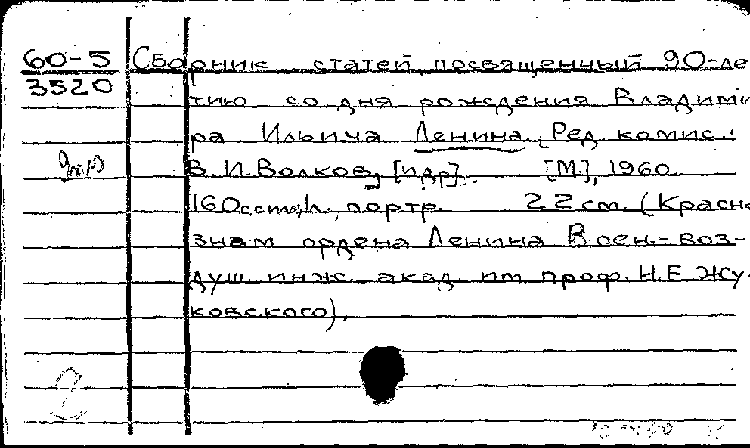 60-5
3520
Сборник статей, посвященный 90-ле
тию со дня рождения Владими
ра Ильича Ленина. [Ред. комис.:
В. И. Волков, [и др]. [М], 1960.
160 с., портр. 22 см. (Красно
знам ордена Ленина Воен.-воз-
душ инж. акад. им проф. Н.Е Жу
ковского).
2